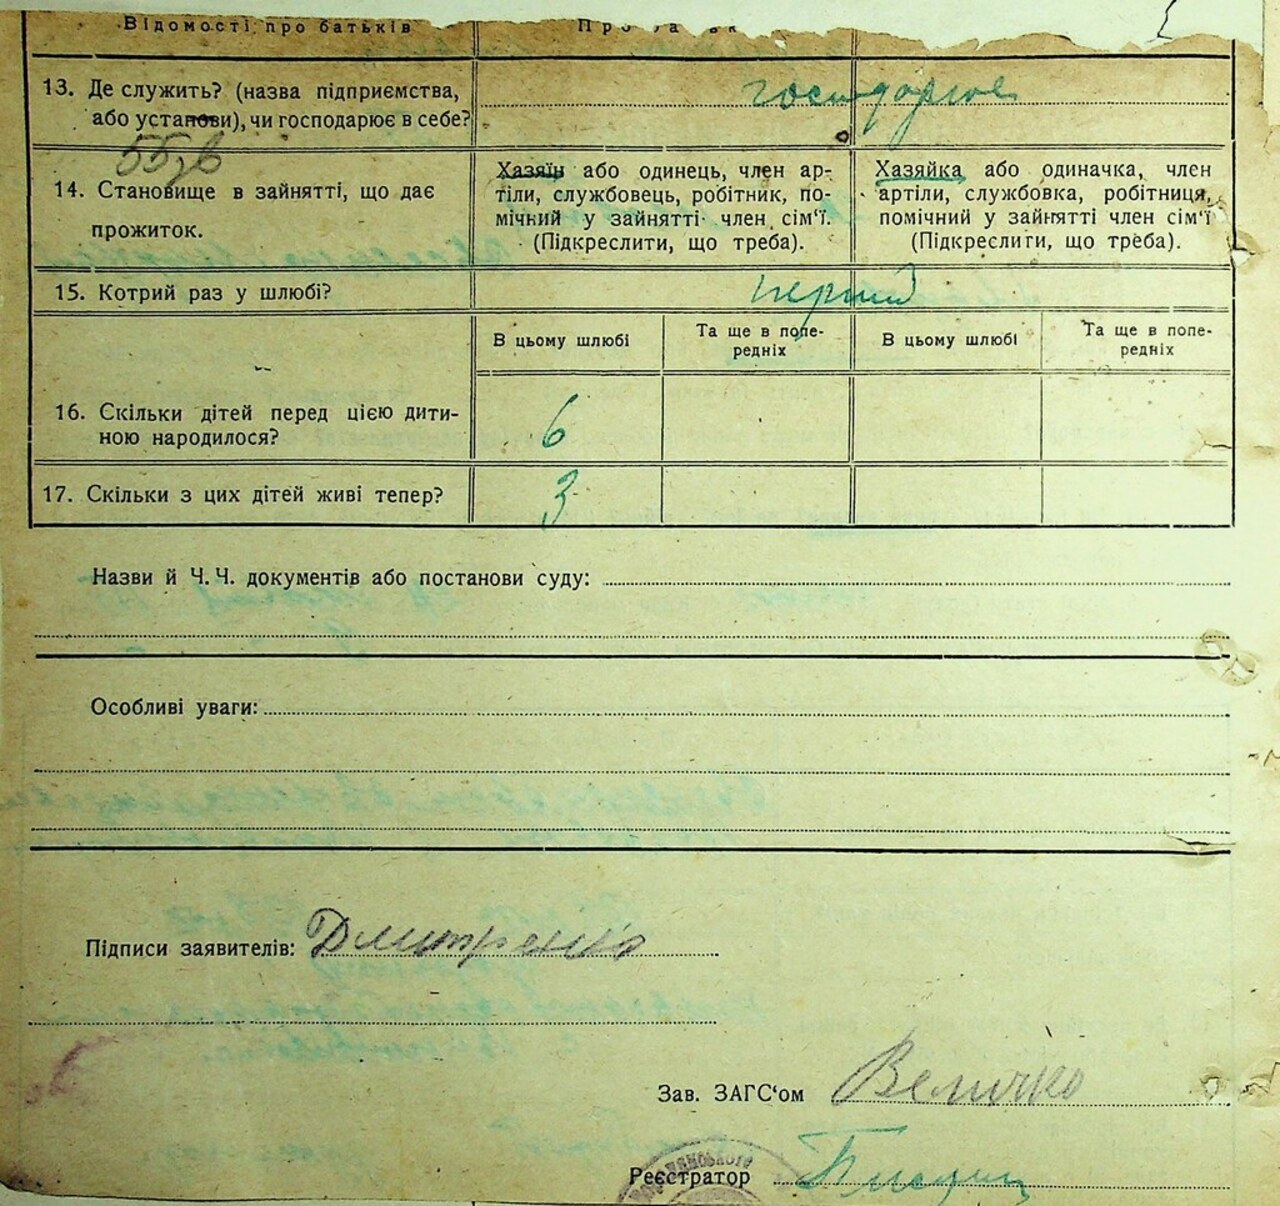 Відомості про батьків
13. Де служить? (назва підприємства, або установи), чи господарює в себе?
господарює
14. Становище в зайнятті, що дає прожиток.
Хазяїн або одинець, член ар-
тіли, службовець, робітник, по-
мічний у зайнятті член сім'ї.
(Підкреслити, що треба).
Хазяйка або одиначка, член
артіли, службовка, робітниця,
помічний у зайнятті член сім'ї
(Підкреслити, що треба).
15. Котрий раз у шлюбі?
перший
В цьому шлюбі
Та ще в попе-
редніх
В цьому шлюбі
Та ще в попе-
редніх
16. Скільки дітей перед цією дити-
ною народилося?
6
17. Скільки з цих дітей живі тепер?
3
Назви й Ч.Ч. документів або постанови суду:
Особливі уваги:
Підписи заявителів: Дмитренко
Зав. ЗАГС'ом Величко
Реєстратор